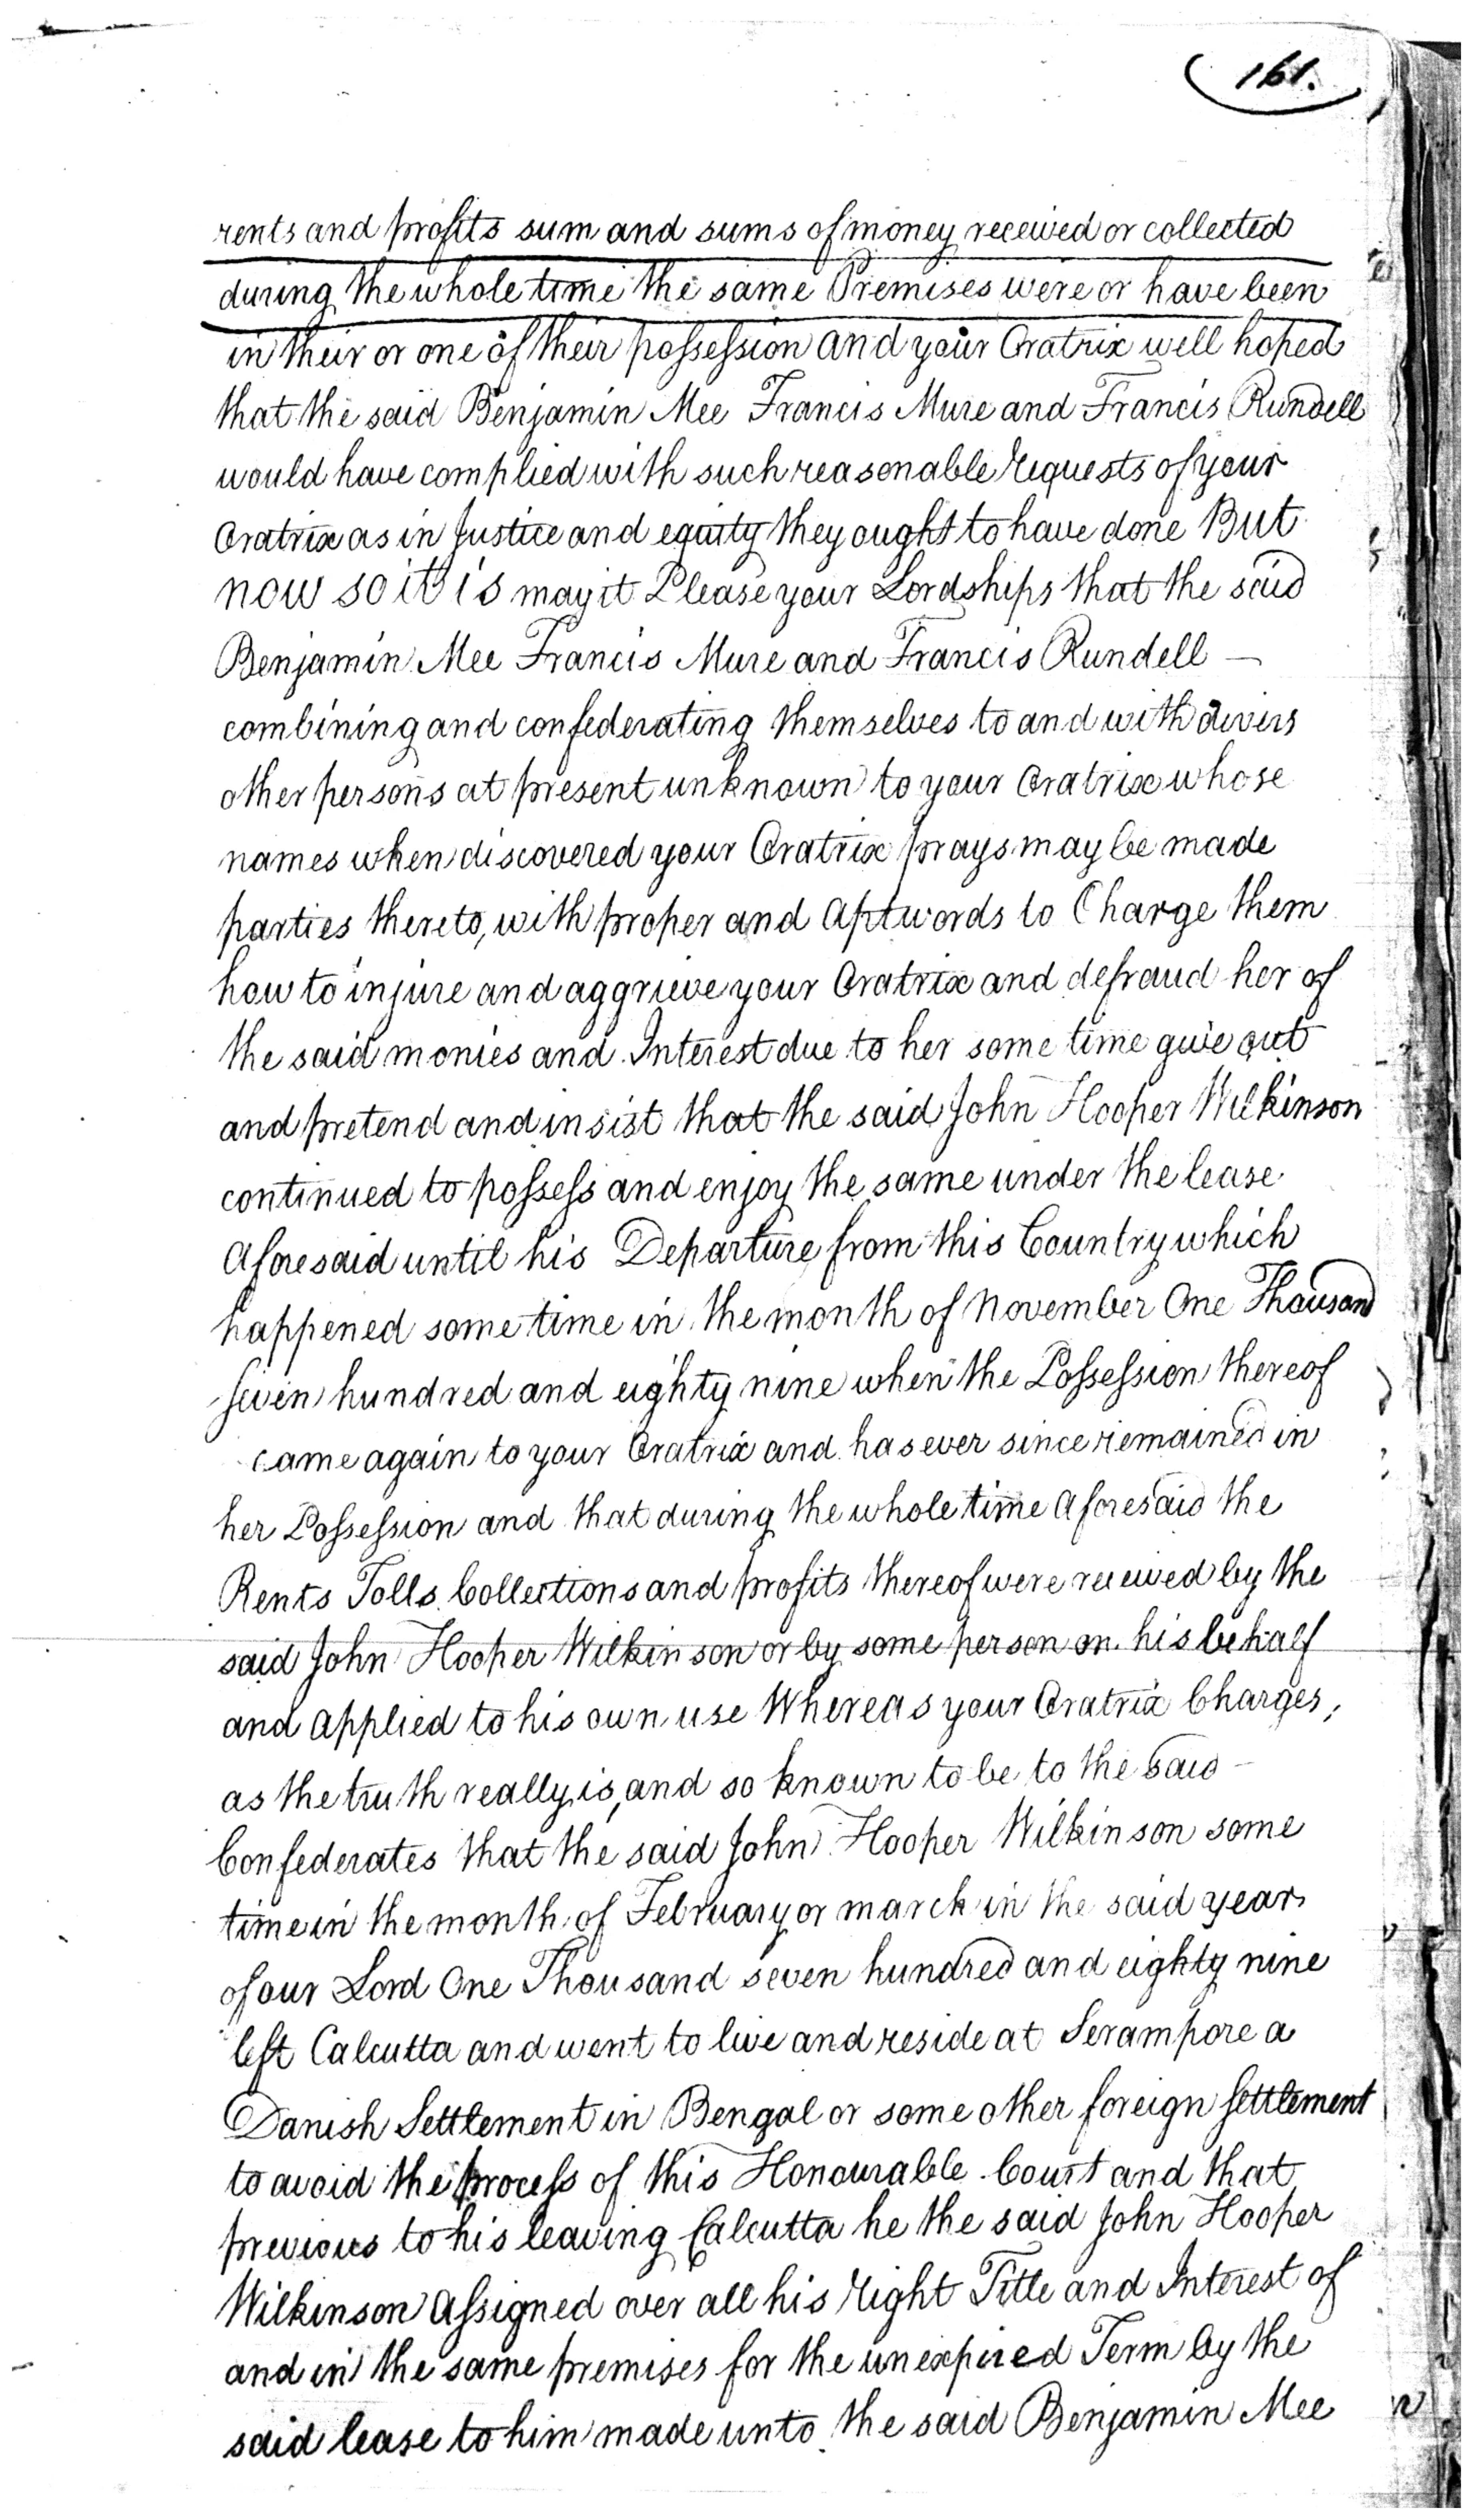 161.
rents and profits sum and sums of money received or collected
during the whole time the same Premises were or have been
in their or one of their possession and your Oratrix well hoped
that the said Benjamin Mee Francis Mure and Francis Rundell
would have complied with such reasonable requests of your
Oratrix as in Justice and equity they ought to have done But
now so it is may it Please your Lordships that the said
Benjamin Mee Francis Mure and Francis Rundell —
combining and confederating themselves to and with divers
other persons at present unknown to your Oratrix whose
names when discovered your Oratrix prays may be made
parties thereto, with proper and apt words to Charge them
how to injure and aggrieve your Oratrix and defraud her of
the said monies and Interest due to her some time give out
and pretend and insist that the said John Hooper Wilkinson
continued to possess and enjoy the same under the lease
aforesaid until his Departure from this Country which
happened some time in the month of November One Thousand
seven hundred and eighty nine when the Possession thereof
came again to your Oratrix and has ever since remained in
her Possession and that during the whole time aforesaid the
Rents Tolls Collections and profits thereof were received by the
said John Hooper Wilkinson or by some person on his behalf
and applied to his own use Whereas your Oratrix Charges,
as the truth really is, and so known to be to the said —
Confederates that the said John Hooper Wilkinson some
time in the month of February or march in the said year
of our Lord One Thousand seven hundred and eighty nine
left Calcutta and went to live and reside at Serampore a
Danish Settlement in Bengal or some other foreign settlement
to avoid the process of this Honourable Court and that
previous to his leaving Calcutta he the said John Hooper
Wilkinson assigned over all his right Title and Interest of
and in the same premises for the unexpired Term by the
said lease to him made unto the said Benjamin Mee